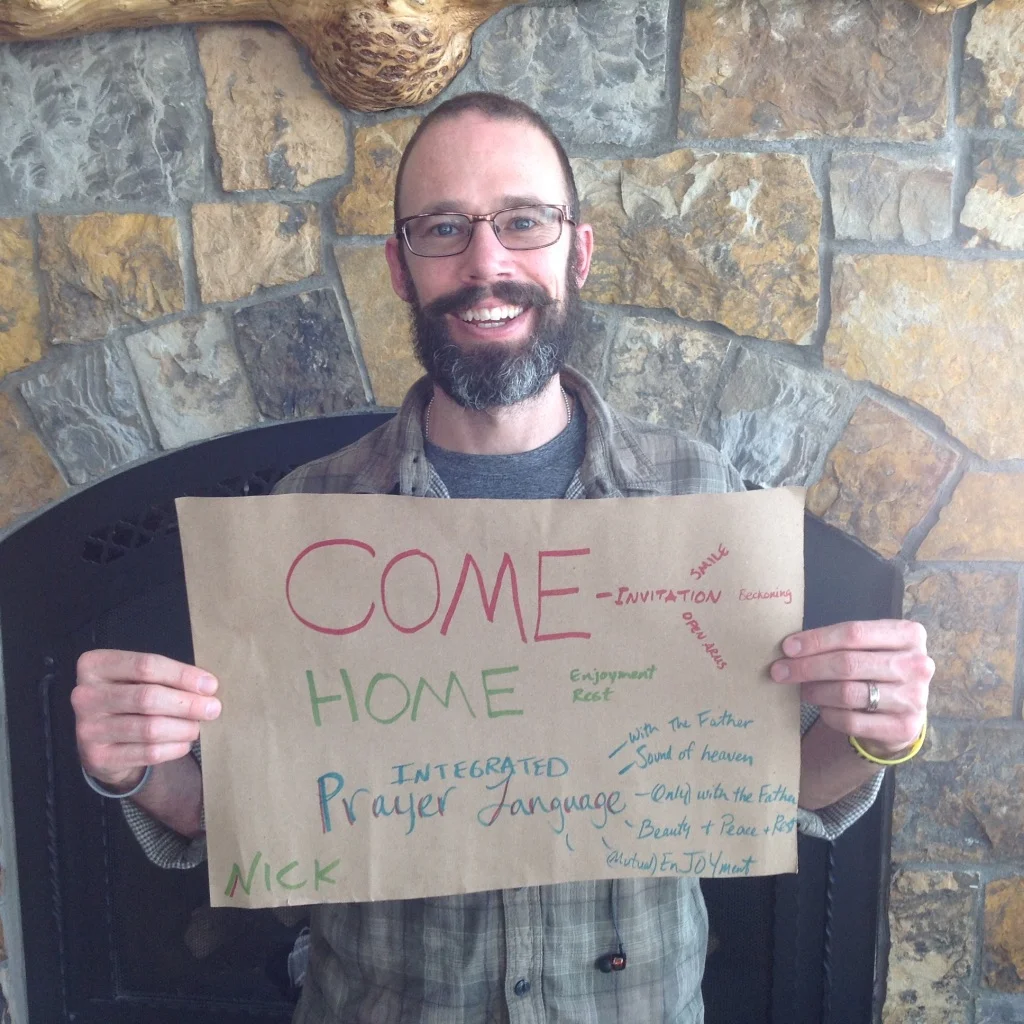 SMILE
COME - INVITATION Beckoning
OPEN ARMS
HOME Enjoyment
Rest
With The Father
Sound of heaven
INTEGRATED
Prayer Language - Only with the Father
Beauty + Peace + Rest
(Mutual) EnJOYment
NICK